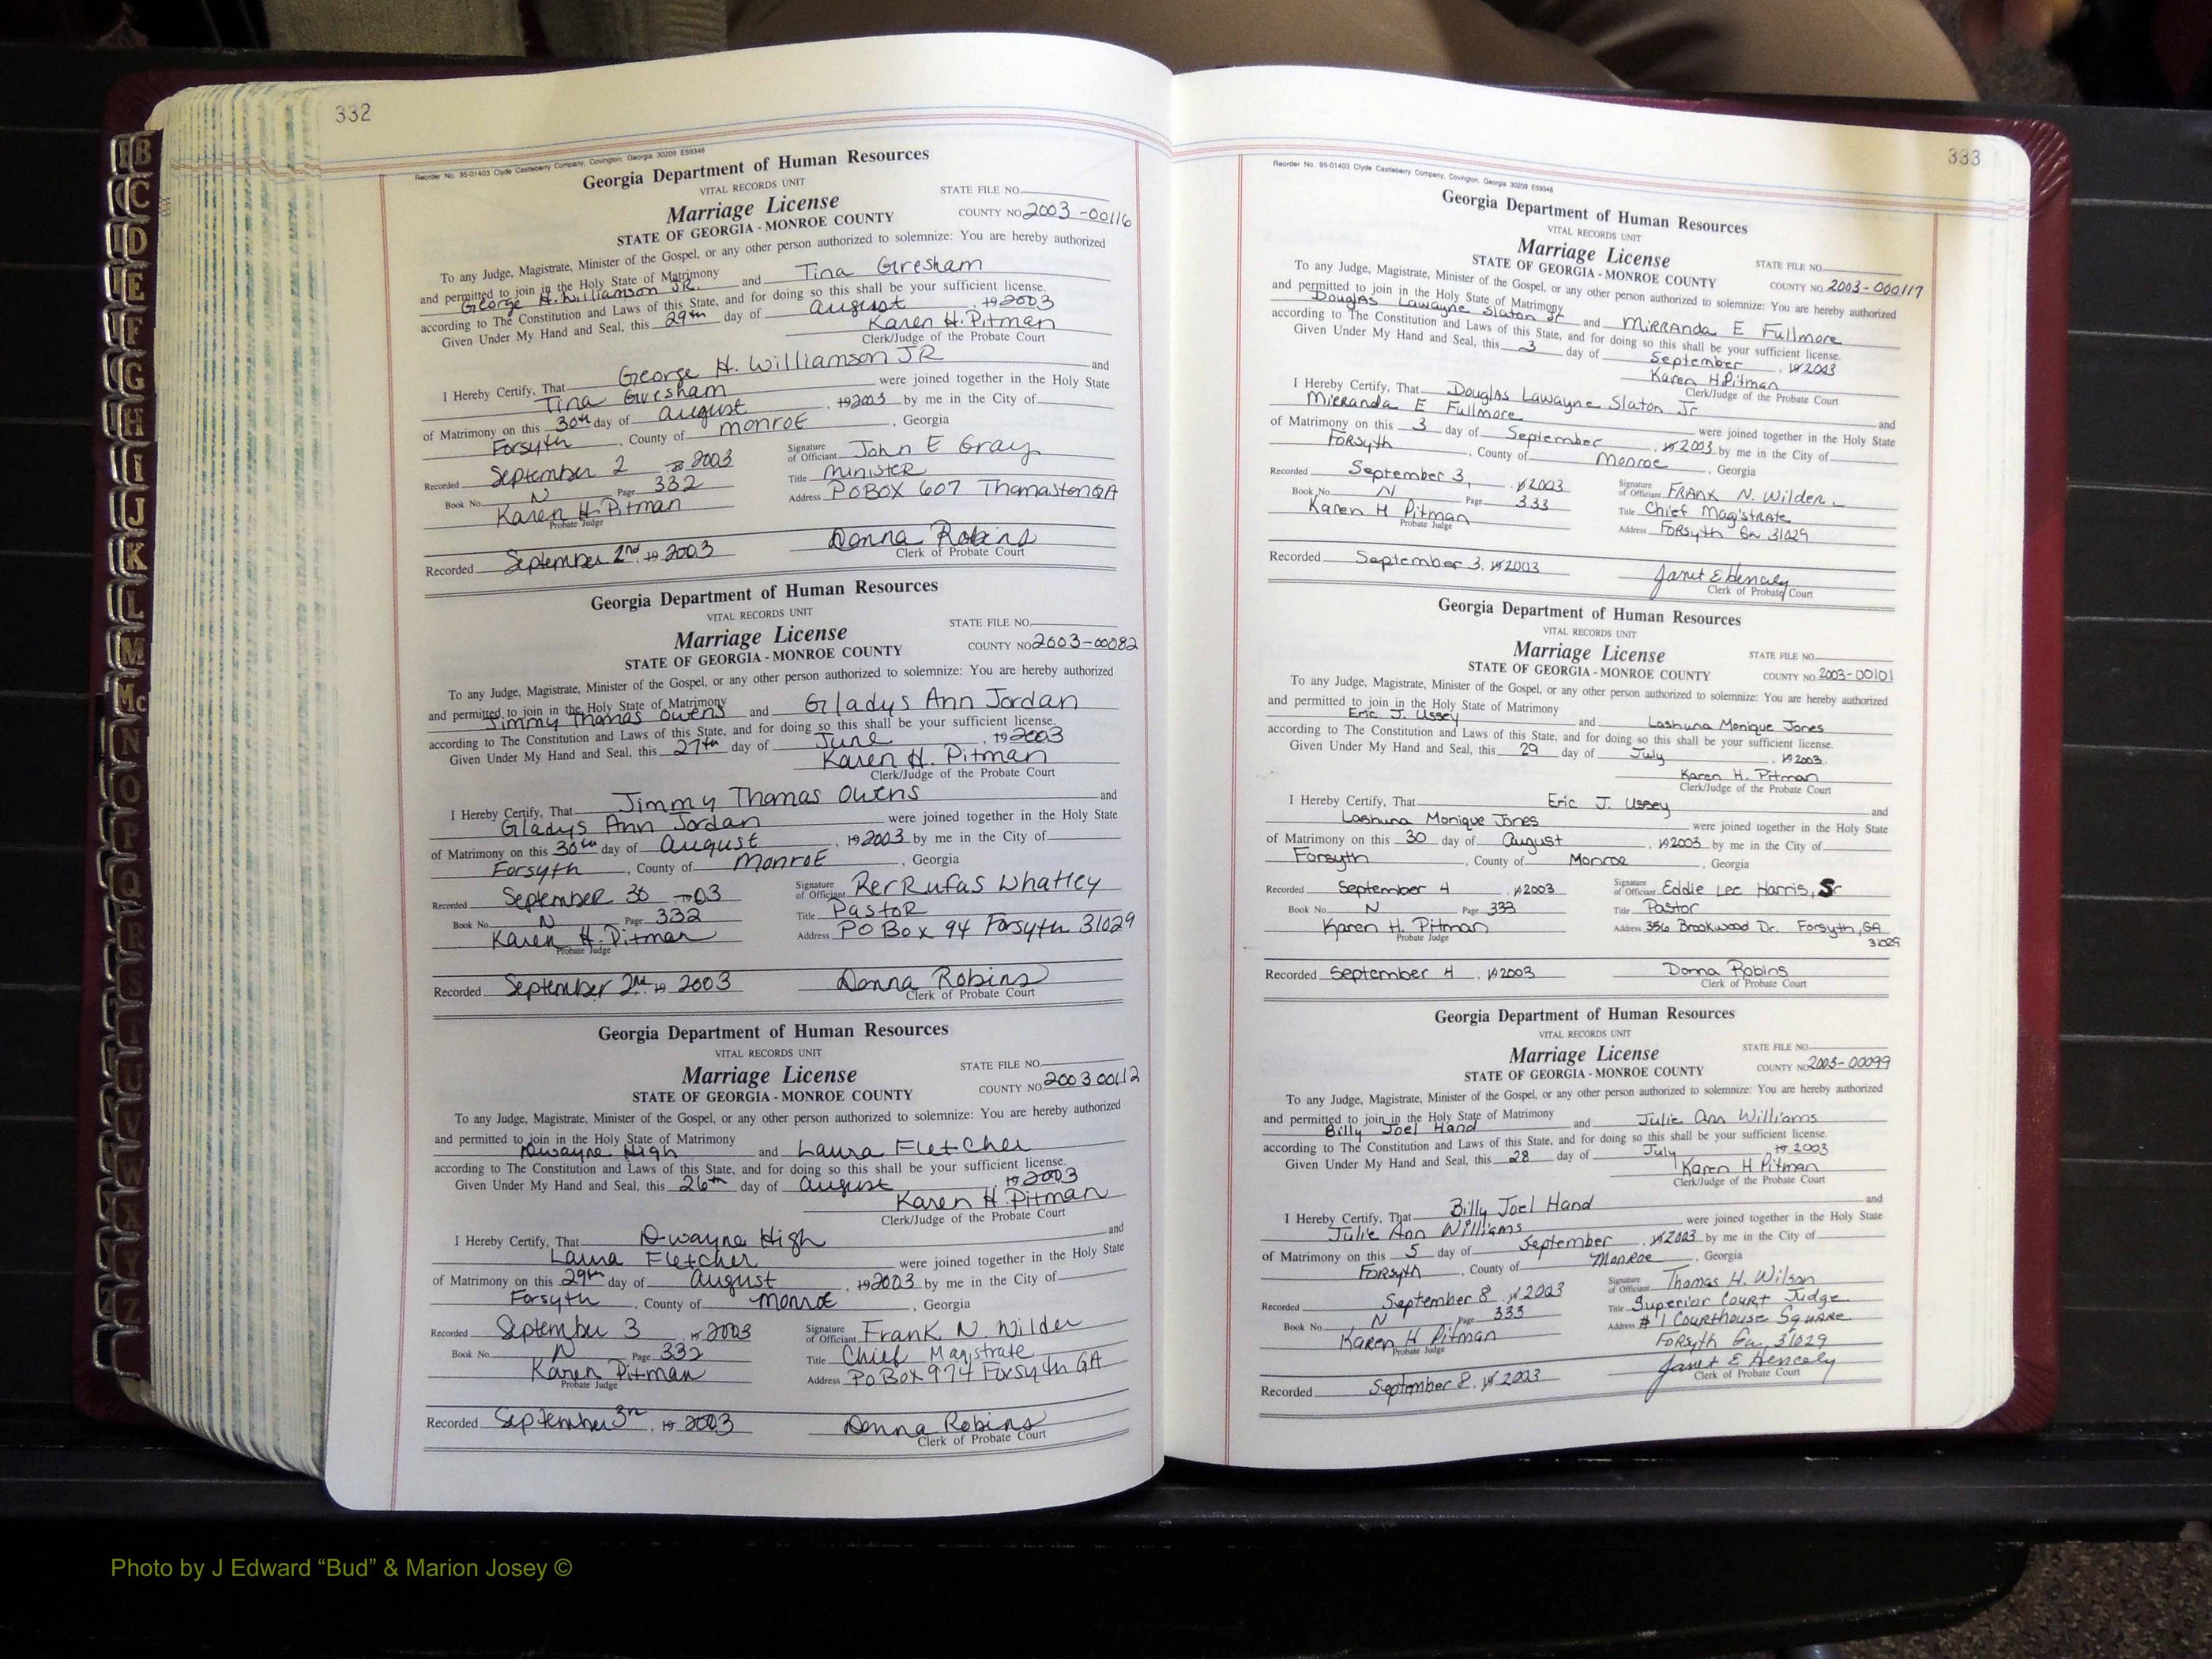 B
C
D
E
F
G
H
I
J
K
L
M
Mc
N
O
P
Q
R
S
T
U
V
W
X
Y
Z
332
Reorder No. 95-01403 Clyde Castleberry Company, Covington, Georgia 30209 E59348
Georgia Department of Human Resources
VITAL RECORDS UNIT
Marriage License
STATE FILE NO.
STATE OF GEORGIA - MONROE COUNTY
COUNTY NO 2003-00116
To any Judge, Magistrate, Minister of the Gospel, or any other person authorized to solemnize: You are hereby authorized
and permitted to join in the Holy State of Matrimony
George H. Williamson JR. and Tina Gresham
according to The Constitution and Laws of this State, and for doing so this shall be your sufficient license.
Given Under My Hand and Seal, this 29th day of august, 19 2003
Karen H. Pitman
Clerk/Judge of the Probate Court
I Hereby Certify, That George H. Williamson JR and
Tina Gresham were joined together in the Holy State
of Matrimony on this 30th day of august, 19 2003 by me in the City of
Forsyth, County of monroe, Georgia
Recorded September 2 19 2003 Signature of Officiant John E Gray
Book No. N Page 332 Title minister
Karen H. Pitman Address PO BOX 607 Thomaston GA
Probate Judge
Recorded September 2nd, 19 2003 Donna Robins
Clerk of Probate Court
Georgia Department of Human Resources
VITAL RECORDS UNIT
Marriage License
STATE FILE NO.
STATE OF GEORGIA - MONROE COUNTY
COUNTY NO 2003-00082
To any Judge, Magistrate, Minister of the Gospel, or any other person authorized to solemnize: You are hereby authorized
and permitted to join in the Holy State of Matrimony
Jimmy Thomas Owens and Gladys Ann Jordan
according to The Constitution and Laws of this State, and for doing so this shall be your sufficient license.
Given Under My Hand and Seal, this 27th day of June, 19 2003
Karen H. Pitman
Clerk/Judge of the Probate Court
I Hereby Certify, That Jimmy Thomas Owens and
Gladys Ann Jordan were joined together in the Holy State
of Matrimony on this 30th day of august, 19 2003 by me in the City of
Forsyth, County of Monroe, Georgia
Recorded September 30 19 03 Signature of Officiant Rer Rufas Whatley
Book No. N Page 332 Title Pastor
Karen H. Pitman Address PO Box 94 Forsyth 31029
Probate Judge
Recorded September 2nd, 19 2003 Donna Robins
Clerk of Probate Court
Georgia Department of Human Resources
VITAL RECORDS UNIT
Marriage License
STATE FILE NO.
STATE OF GEORGIA - MONROE COUNTY
COUNTY NO 2003 00112
To any Judge, Magistrate, Minister of the Gospel, or any other person authorized to solemnize: You are hereby authorized
and permitted to join in the Holy State of Matrimony
Dwayne High and Laura Fletcher
according to The Constitution and Laws of this State, and for doing so this shall be your sufficient license.
Given Under My Hand and Seal, this 26th day of august, 19 2003
Karen H. Pitman
Clerk/Judge of the Probate Court
I Hereby Certify, That Dwayne High and
Laura Fletcher were joined together in the Holy State
of Matrimony on this 29th day of august, 19 2003 by me in the City of
Forsyth, County of monroe, Georgia
Recorded September 3, 19 2003 Signature of Officiant Frank N. Wilder
Book No. N Page 332 Title Chief Magistrate
Karen Pitman Address PO Box 974 Forsyth GA
Probate Judge
Recorded September 3rd, 19 2003 Donna Robins
Clerk of Probate Court
333
Reorder No. 95-01403 Clyde Castleberry Company, Covington, Georgia 30209 E59348
Georgia Department of Human Resources
VITAL RECORDS UNIT
Marriage License
STATE FILE NO.
STATE OF GEORGIA - MONROE COUNTY
COUNTY NO 2003-000117
To any Judge, Magistrate, Minister of the Gospel, or any other person authorized to solemnize: You are hereby authorized
and permitted to join in the Holy State of Matrimony
Douglas Lawayne Slaton Jr and Mirranda E Fullmore
according to The Constitution and Laws of this State, and for doing so this shall be your sufficient license.
Given Under My Hand and Seal, this 3 day of September, 19 2003
Karen H Pitman
Clerk/Judge of the Probate Court
I Hereby Certify, That Douglas Lawayne Slaton Jr and
Mirranda E Fullmore were joined together in the Holy State
of Matrimony on this 3 day of September, 19 2003 by me in the City of
Forsyth, County of Monroe, Georgia
Recorded September 3, 19 2003 Signature of Officiant FRANK N. Wilder
Book No. N Page 333 Title Chief Magistrate
Karen H Pitman Address Forsyth Ga 31029
Probate Judge
Recorded September 3, 19 2003 Janet E Hencely
Clerk of Probate Court
Georgia Department of Human Resources
VITAL RECORDS UNIT
Marriage License
STATE FILE NO.
STATE OF GEORGIA - MONROE COUNTY
COUNTY NO 2003-00101
To any Judge, Magistrate, Minister of the Gospel, or any other person authorized to solemnize: You are hereby authorized
and permitted to join in the Holy State of Matrimony
Eric J. Ussey and Lashuna Monique Jones
according to The Constitution and Laws of this State, and for doing so this shall be your sufficient license.
Given Under My Hand and Seal, this 29 day of July, 19 2003.
Karen H. Pitman
Clerk/Judge of the Probate Court
I Hereby Certify, That Eric J. Ussey and
Lashuna Monique Jones were joined together in the Holy State
of Matrimony on this 30 day of August, 19 2003 by me in the City of
Forsyth, County of Monroe, Georgia
Recorded September 4, 19 2003 Signature of Officiant Eddie Lee Harris, Sr
Book No. N Page 333 Title Pastor
Karen H. Pitman Address 356 Brookwood Dr. Forsyth, GA
31029
Probate Judge
Recorded September 4, 19 2003 Donna Robins
Clerk of Probate Court
Georgia Department of Human Resources
VITAL RECORDS UNIT
Marriage License
STATE FILE NO.
STATE OF GEORGIA - MONROE COUNTY
COUNTY NO 2003-00099
To any Judge, Magistrate, Minister of the Gospel, or any other person authorized to solemnize: You are hereby authorized
and permitted to join in the Holy State of Matrimony
Billy Joel Hand and Julie Ann Williams
according to The Constitution and Laws of this State, and for doing so this shall be your sufficient license.
Given Under My Hand and Seal, this 28 day of July, 19 2003
Karen H Pitman
Clerk/Judge of the Probate Court
I Hereby Certify, That Billy Joel Hand and
Julie Ann Williams were joined together in the Holy State
of Matrimony on this 5 day of September, 19 2003 by me in the City of
Forsyth, County of Monroe, Georgia
Recorded September 8, 19 2003 Signature of Officiant Thomas H. Wilson
Book No. N Page 333 Title Superior Court Judge
Karen H Pitman Address #1 Courthouse Square
Probate Judge Forsyth Ga, 31029
Recorded September 8, 19 2003 Janet E Hencely
Clerk of Probate Court
Photo by J Edward “Bud” & Marion Josey ©